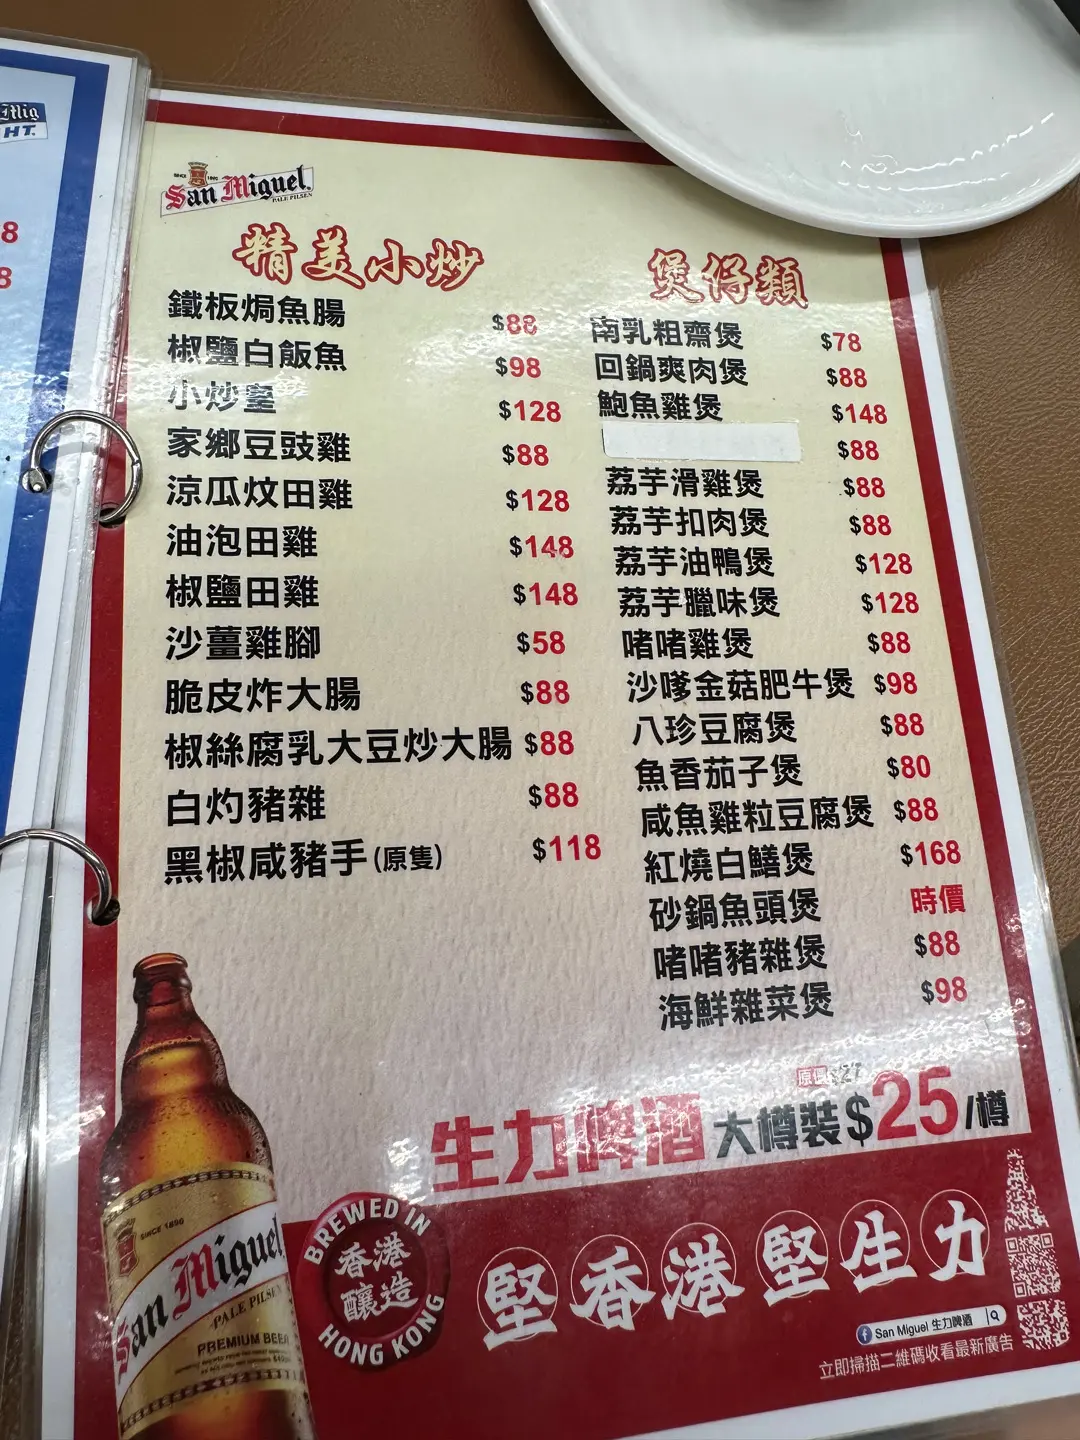 Mig
HT.
8
8
SINCE 1890
San Miguel
PALE PILSEN
精美小炒
鐵板焗魚腸 $88
椒鹽白飯魚 $98
小炒皇 $128
家鄉豆豉雞 $88
涼瓜炆田雞 $128
油泡田雞 $148
椒鹽田雞 $148
沙薑雞腳 $58
脆皮炸大腸 $88
椒絲腐乳大豆炒大腸 $88
白灼豬雜 $88
黑椒咸豬手(原隻) $118
煲仔類
南乳粗齋煲 $78
回鍋爽肉煲 $88
鮑魚雞煲 $148
$88
荔芋滑雞煲 $88
荔芋扣肉煲 $88
荔芋油鴨煲 $128
荔芋臘味煲 $128
啫啫雞煲 $88
沙嗲金菇肥牛煲 $98
八珍豆腐煲 $88
魚香茄子煲 $80
咸魚雞粒豆腐煲 $88
紅燒白鱔煲 $168
砂鍋魚頭煲 時價
啫啫豬雜煲 $88
海鮮雜菜煲 $98
原價$27
生力啤酒大樽裝$25/樽
SINCE 1890
San Miguel
PALE PILSEN
PREMIUM BEER
BREWED IN
香港
釀造
HONG KONG
堅香港堅生力
San Miguel 生力啤酒
立即掃描二維碼收看最新廣告